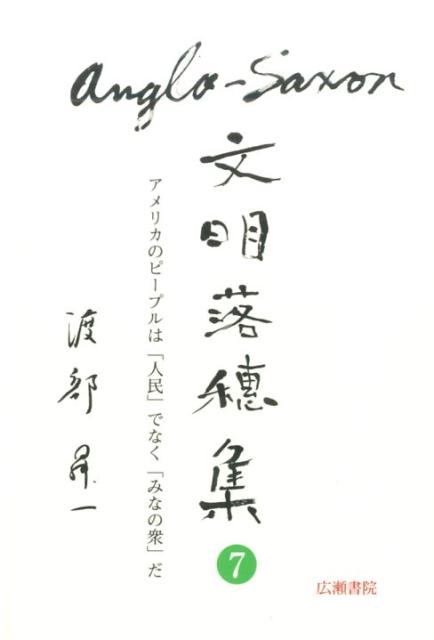 Anglo-Saxon
文明落穂集
7
アメリカのピープルは「人民」でなく「みなの衆」だ
渡部昇一
広瀬書院